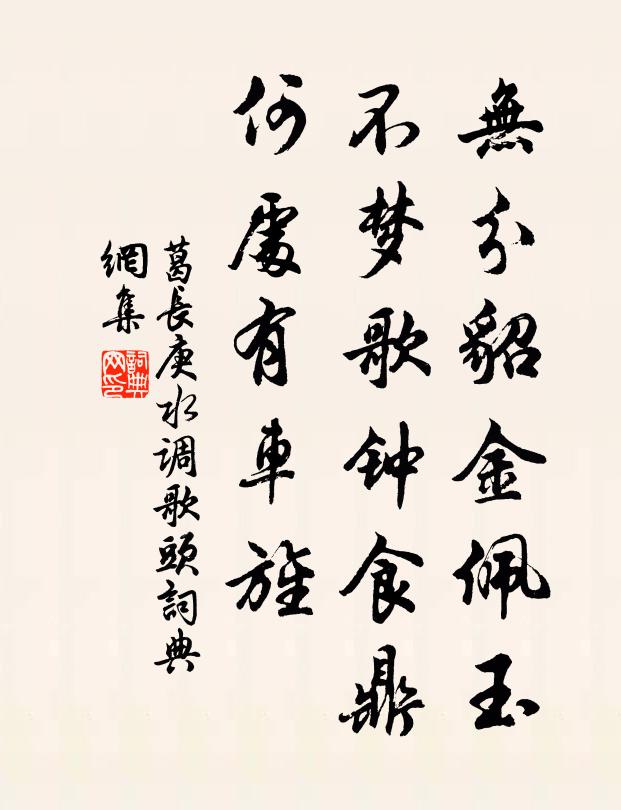 無分貂金佩玉
不梦歌钟食鼎
何處有車旌
葛長庚水调歌頭詞典
網集
詞典网印